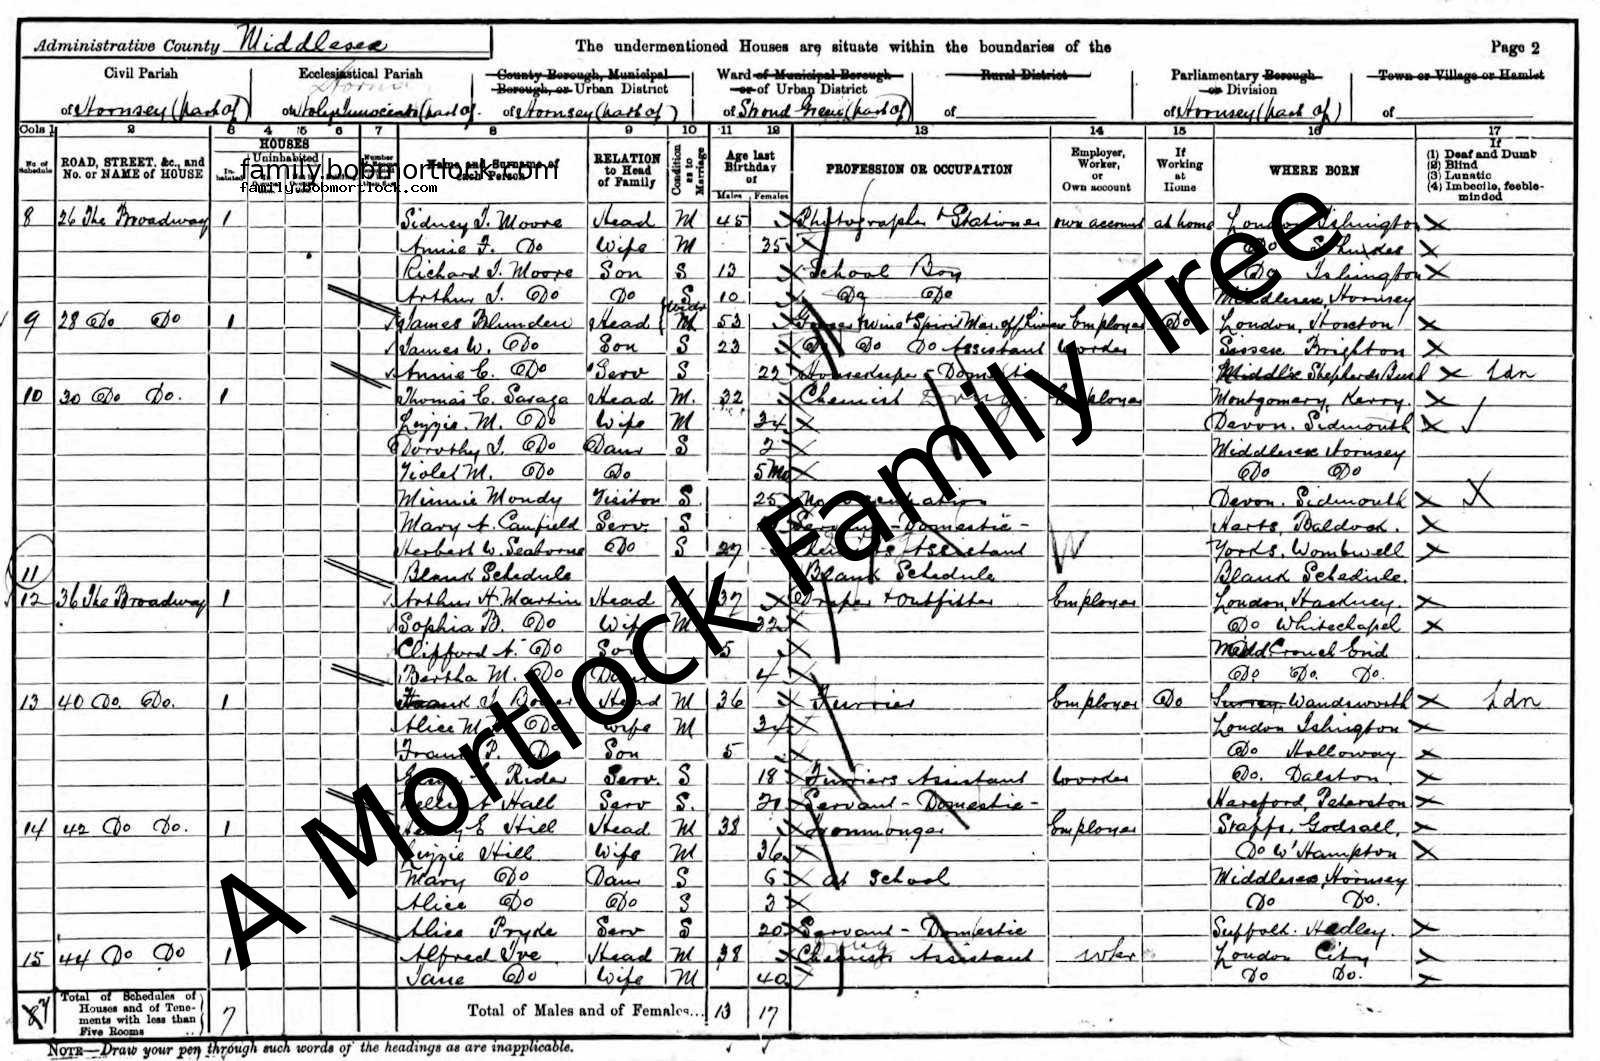 Administrative County Middlesex
The undermentioned Houses are situate within the boundaries of the
Page 2
Civil Parish
of Hornsey (part of)
Ecclesiastical Parish
of Holy Innocents (part of
County Borough, Municipal Borough, or Urban District
of Hornsey (part of)
Ward of Municipal Borough or of Urban District
of Stroud Green (part of)
Rural District
of
Parliamentary Borough or Division
of Hornsey (part of)
Town or Village or Hamlet
of
Cols 1 2 3 4 5 6 7 8 9 10 11 12 13 14 15 16 17
No. of Schedule
ROAD, STREET, &c., and No. or NAME of HOUSE
HOUSES
Uninhabited
Name and Surname of each Person
RELATION to Head of Family
Condition as to Marriage
Age last Birthday of
Males Females
PROFESSION OR OCCUPATION
Employer, Worker, or Own account
If Working at Home
WHERE BORN
If (1) Deaf and Dumb (2) Blind (3) Lunatic (4) Imbecile, feeble-minded
family.bobmortlock.com
family.bobmortlock.com
8 26 The Broadway 1 Sidney J. Moore Head M 45 Photographer & Stationer own account at home London Islington
Annie F. Do Wife M 35 Do
Richard J. Moore Son S 13 School Boy Do Islington
Arthur J. Do Do S 10 Do Do Middlesex, Hornsey
9 28 Do Do 1 James Blunden Head M 53 Employer Do London, Hoxton
James W. Do Son S 23 Do Do Do Assistant Worker Sussex Brighton
Annie E. Do Serv S 22 Housekeeper - Domestic Middlx Shepherds Bush Ldn
10 30 Do Do. 1 Thomas C. Savage Head M. 32 Chemist Drug Employer Montgomery, Kerry.
Lizzie. M. Do Wife M 34 Devon. Sidmouth
Dorothy J. Do Daur S 2 Middlesex Hornsey
Violet M. Do Do 5 Mo Do Do
Minnie Mondy Visitor S. 25 No occupation Devon. Sidmouth
Mary A. Canfield Serv. S Servant - Domestic - Herts, Baldock.
Herbert W. Seaborne Do S 27 Chemists Assistant W Yorks, Wombwell
11 Blank Schedule Blank Schedule Blank Schedule.
12 36 The Broadway 1 Arthur H. Martin Head M 37 Draper & Outfitter Employer London, Hackney.
Sophia B. Do Wife M 32 Do Whitechapel
Clifford A. Do Son 5 Midd Crouch End
Bertha M. Do Daur 4 Do Do. Do.
13 40 Do. Do. 1 Frank J. Head M 36 Furrier Employer Do Surrey Wandsworth Ldn
Alice M. Do Wife M 34 London Islington
Frank P. Do Son 5 Do Holloway
Rider Serv. S 18 Furriers Assistant Worker Do. Dalston
Nellie A Hall Serv S. Servant - Domestic - Hereford, Peterston
14 42 Do Do. 1 E Hill Head M 38 Ironmonger Employer Staffs, Godsall,
Lizzie Hill Wife M 36 Do W'Hampton
Mary Do Daur S 6 at School Middlesex, Hornsey
Alice Do Do S 3 Do Do.
Alice Pryke Serv S 20 Servant - Domestic Suffolk. Hadley.
15 44 Do Do 1 Alfred Ive Head M 38 Chemists Assistant wker London City
Jane Do Wife M 40 Do Do.
Total of Schedules of Houses and of Tenements with less than Five Rooms
7
Total of Males and of Females... 13 17
NOTE—Draw your pen through such words of the headings as are inapplicable.
A Mortlock Family Tree